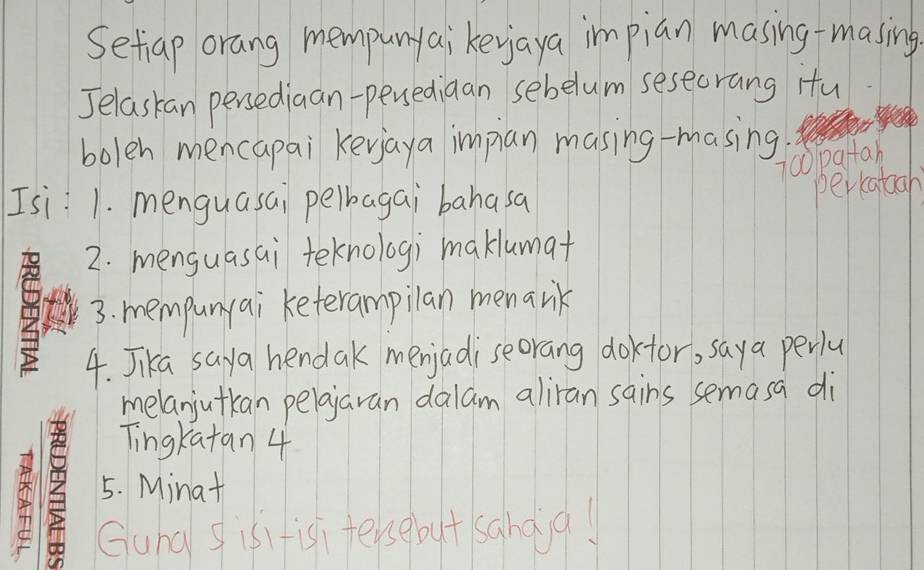 Setiap orang mempunyai kerjaya impian masing-masing.
Jelaskan persediaan-persediaan sebelum seseorang itu
boleh mencapai kerjaya impian masing-masing.
700 patah
perkataan
Isi: 1. menguasai pelbagai bahasa
2. menguasai teknologi maklumat
3. mempunyai keterampilan menarik
4. Jika saya hendak menjadi seorang doktor, saya perlu
melanjutkan pelajaran dalam aliran sains semasa di
Tingkatan 4
5. Minat
Guna 5 isi-isi tersebut sahaja!
PRUDENTIAL
PRUDENTIAL BS
TAKAFUL